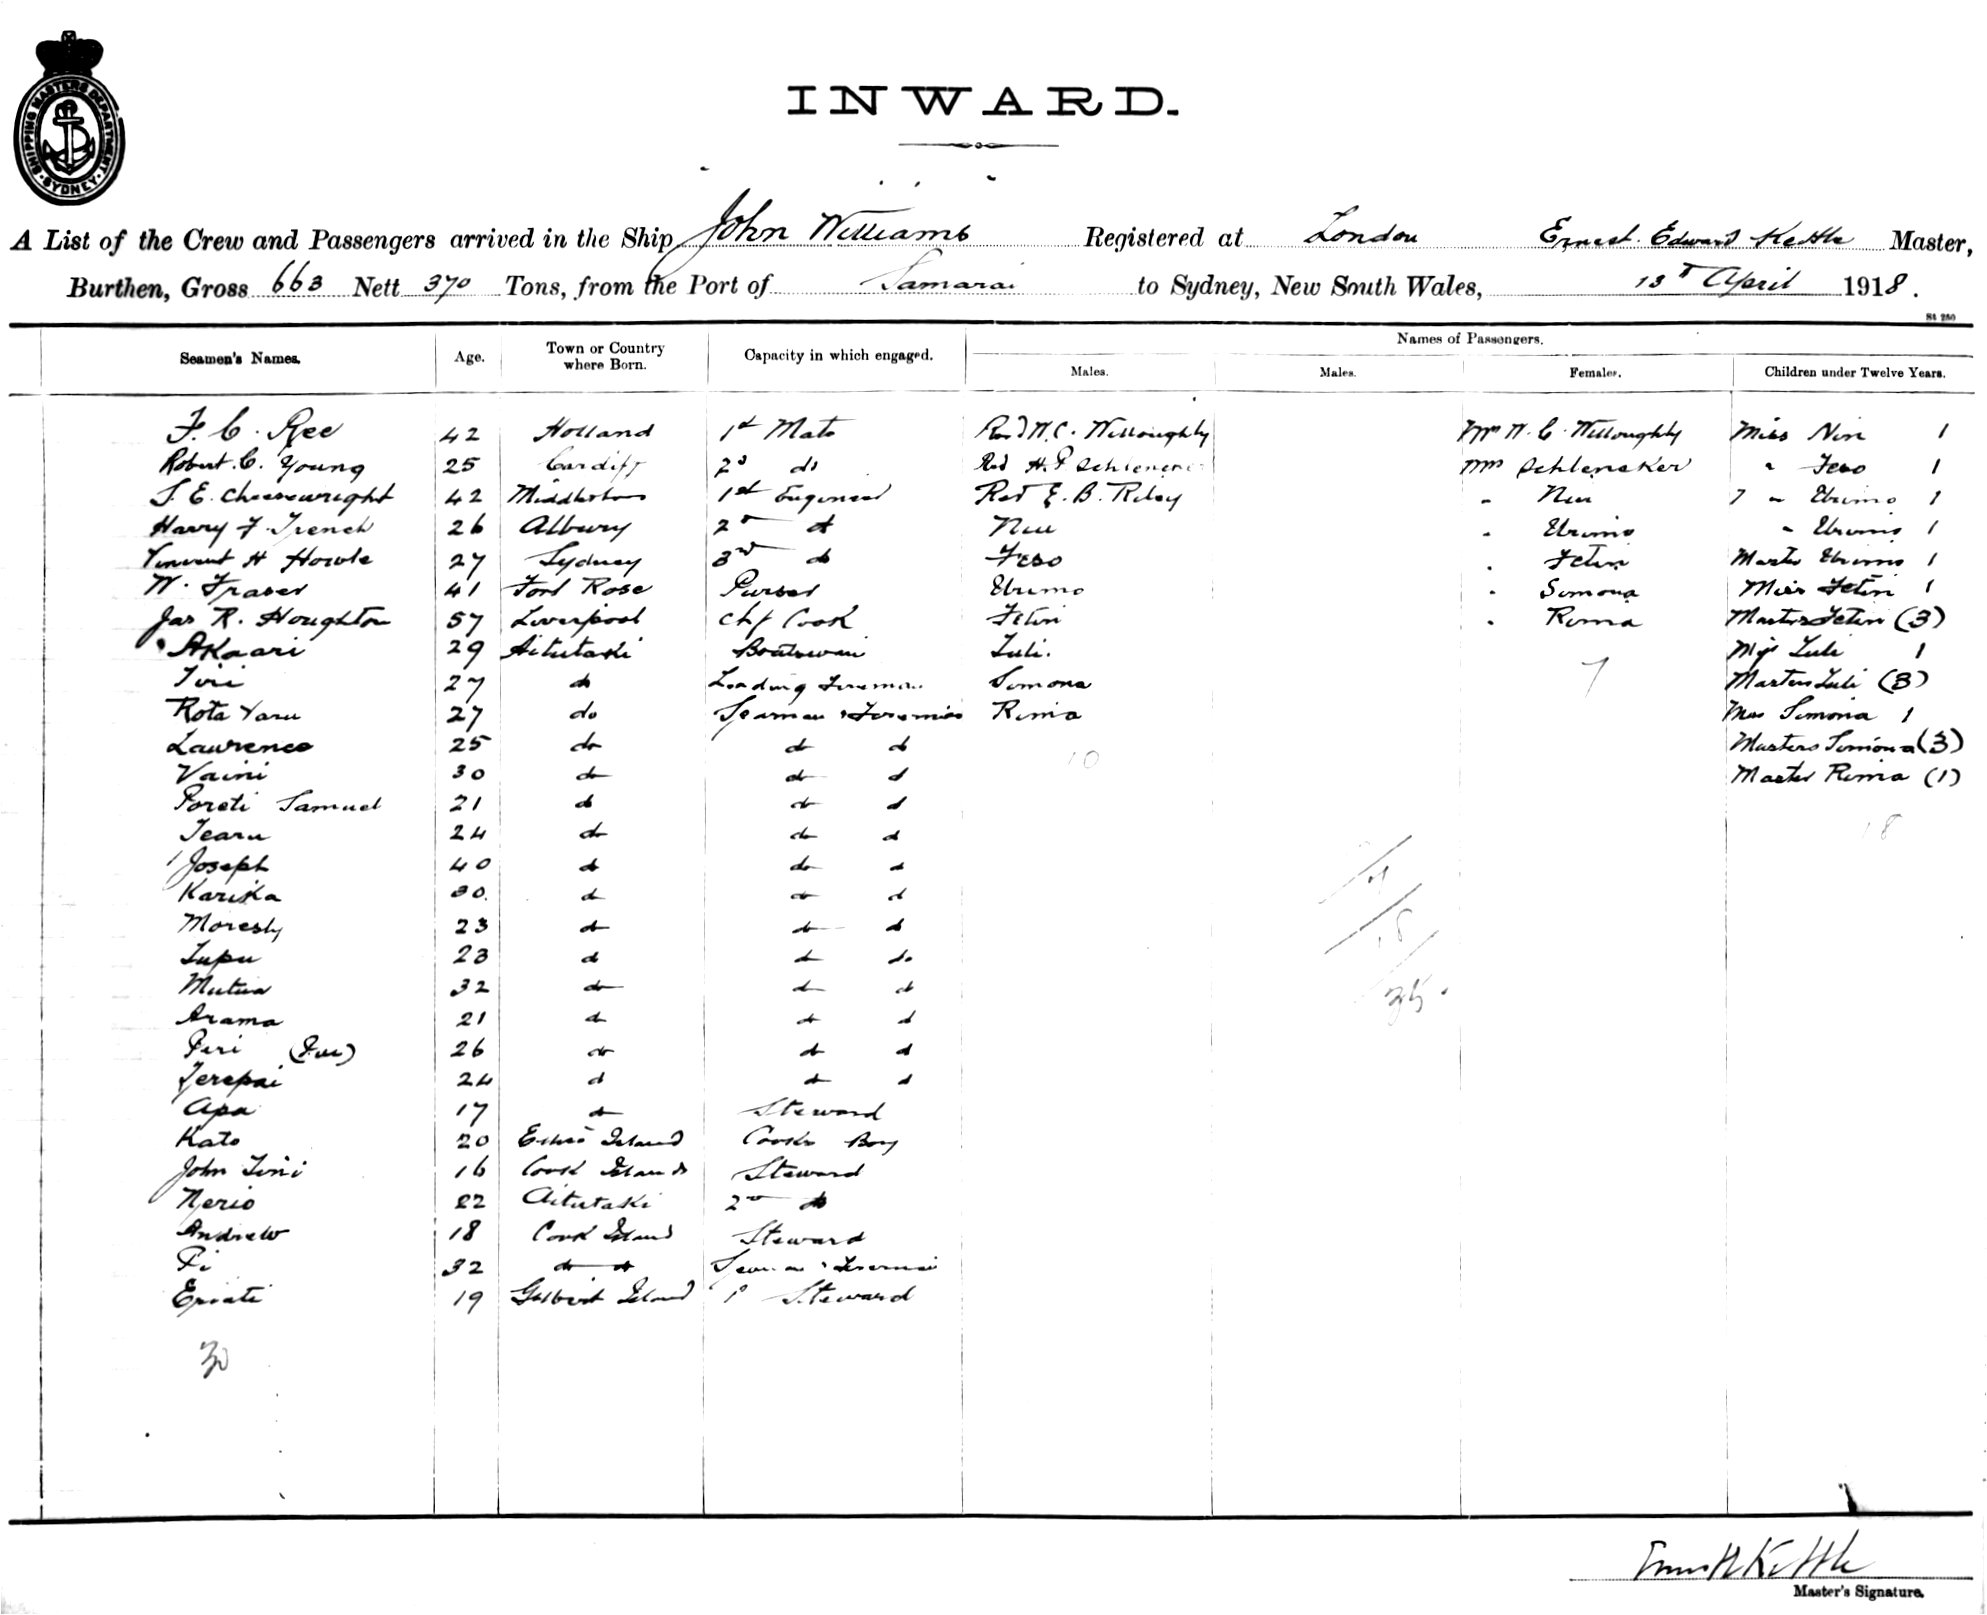 SHIPPING MASTERS DEPARTMENT. SYDNEY.
INWARD.
A List of the Crew and Passengers arrived in the Ship John Williams Registered at London Ernest Edward Kettle Master,
Burthen, Gross 663 Nett 370 Tons, from the Port of Samarai to Sydney, New South Wales, 13th April 1918.
St 250
Seamen's Names. Age. Town or Country where Born. Capacity in which engaged. Names of Passengers.
Males. Males. Females. Children under Twelve Years.
F. C. Ree 42 Holland 1st Mate Revd W. C. Willoughby Mrs W. C. Willoughby Miss Niu 1
Robert C. Young 25 Cardiff 2d do Rev H. P. Schlencker Mrs Schlencker " Feso 1
42 1st Engineer Rev E. B. Riley " Niu " Urimo 1
Harry F. Trench 26 Albury 2nd do Niu " Urimo " Urimo 1
Vincent H Howle 27 Sydney 3rd do Feso " Fetin Master Urimo 1
W. Fraser 41 Fort Rose Purser Urimo " Simona Miss Fetin 1
Jas R. Houghton 57 Liverpool Chf Cook Fetin " Rima Masters Fetin (3)
Akaari 29 Aitutaki Boatswain Luli. Miss Luli 1
Tiri 27 do Leading Fireman Simona 7 Masters Luli (3)
Rota Varu 27 do Seaman & Fireman Rima Miss Simona 1
Lawrence 25 do do do 10 Masters Simona (3)
Vaini 30 do do do Master Rima (1)
Poreti Samuel 21 do do do
Tearu 24 do do do 18
Joseph 40 do do do
Karika 30 do do do
Moresby 23 do do do
Tupu 23 do do do 18
Mutua 32 do do do 35
Arama 21 do do do
Peri 26 do do do
Terepai 24 do do do
Apa 17 do Steward
Kato 20 Island Cooks Boy
John Tini 16 Cook Islands Steward
Nerio 22 Aitutaki 2nd do
Andrew 18 Cook Island Steward
Pi 32 do do Seaman & Fireman
19 Gilbert Island Steward
30
Ernest E Kettle
Master's Signature.